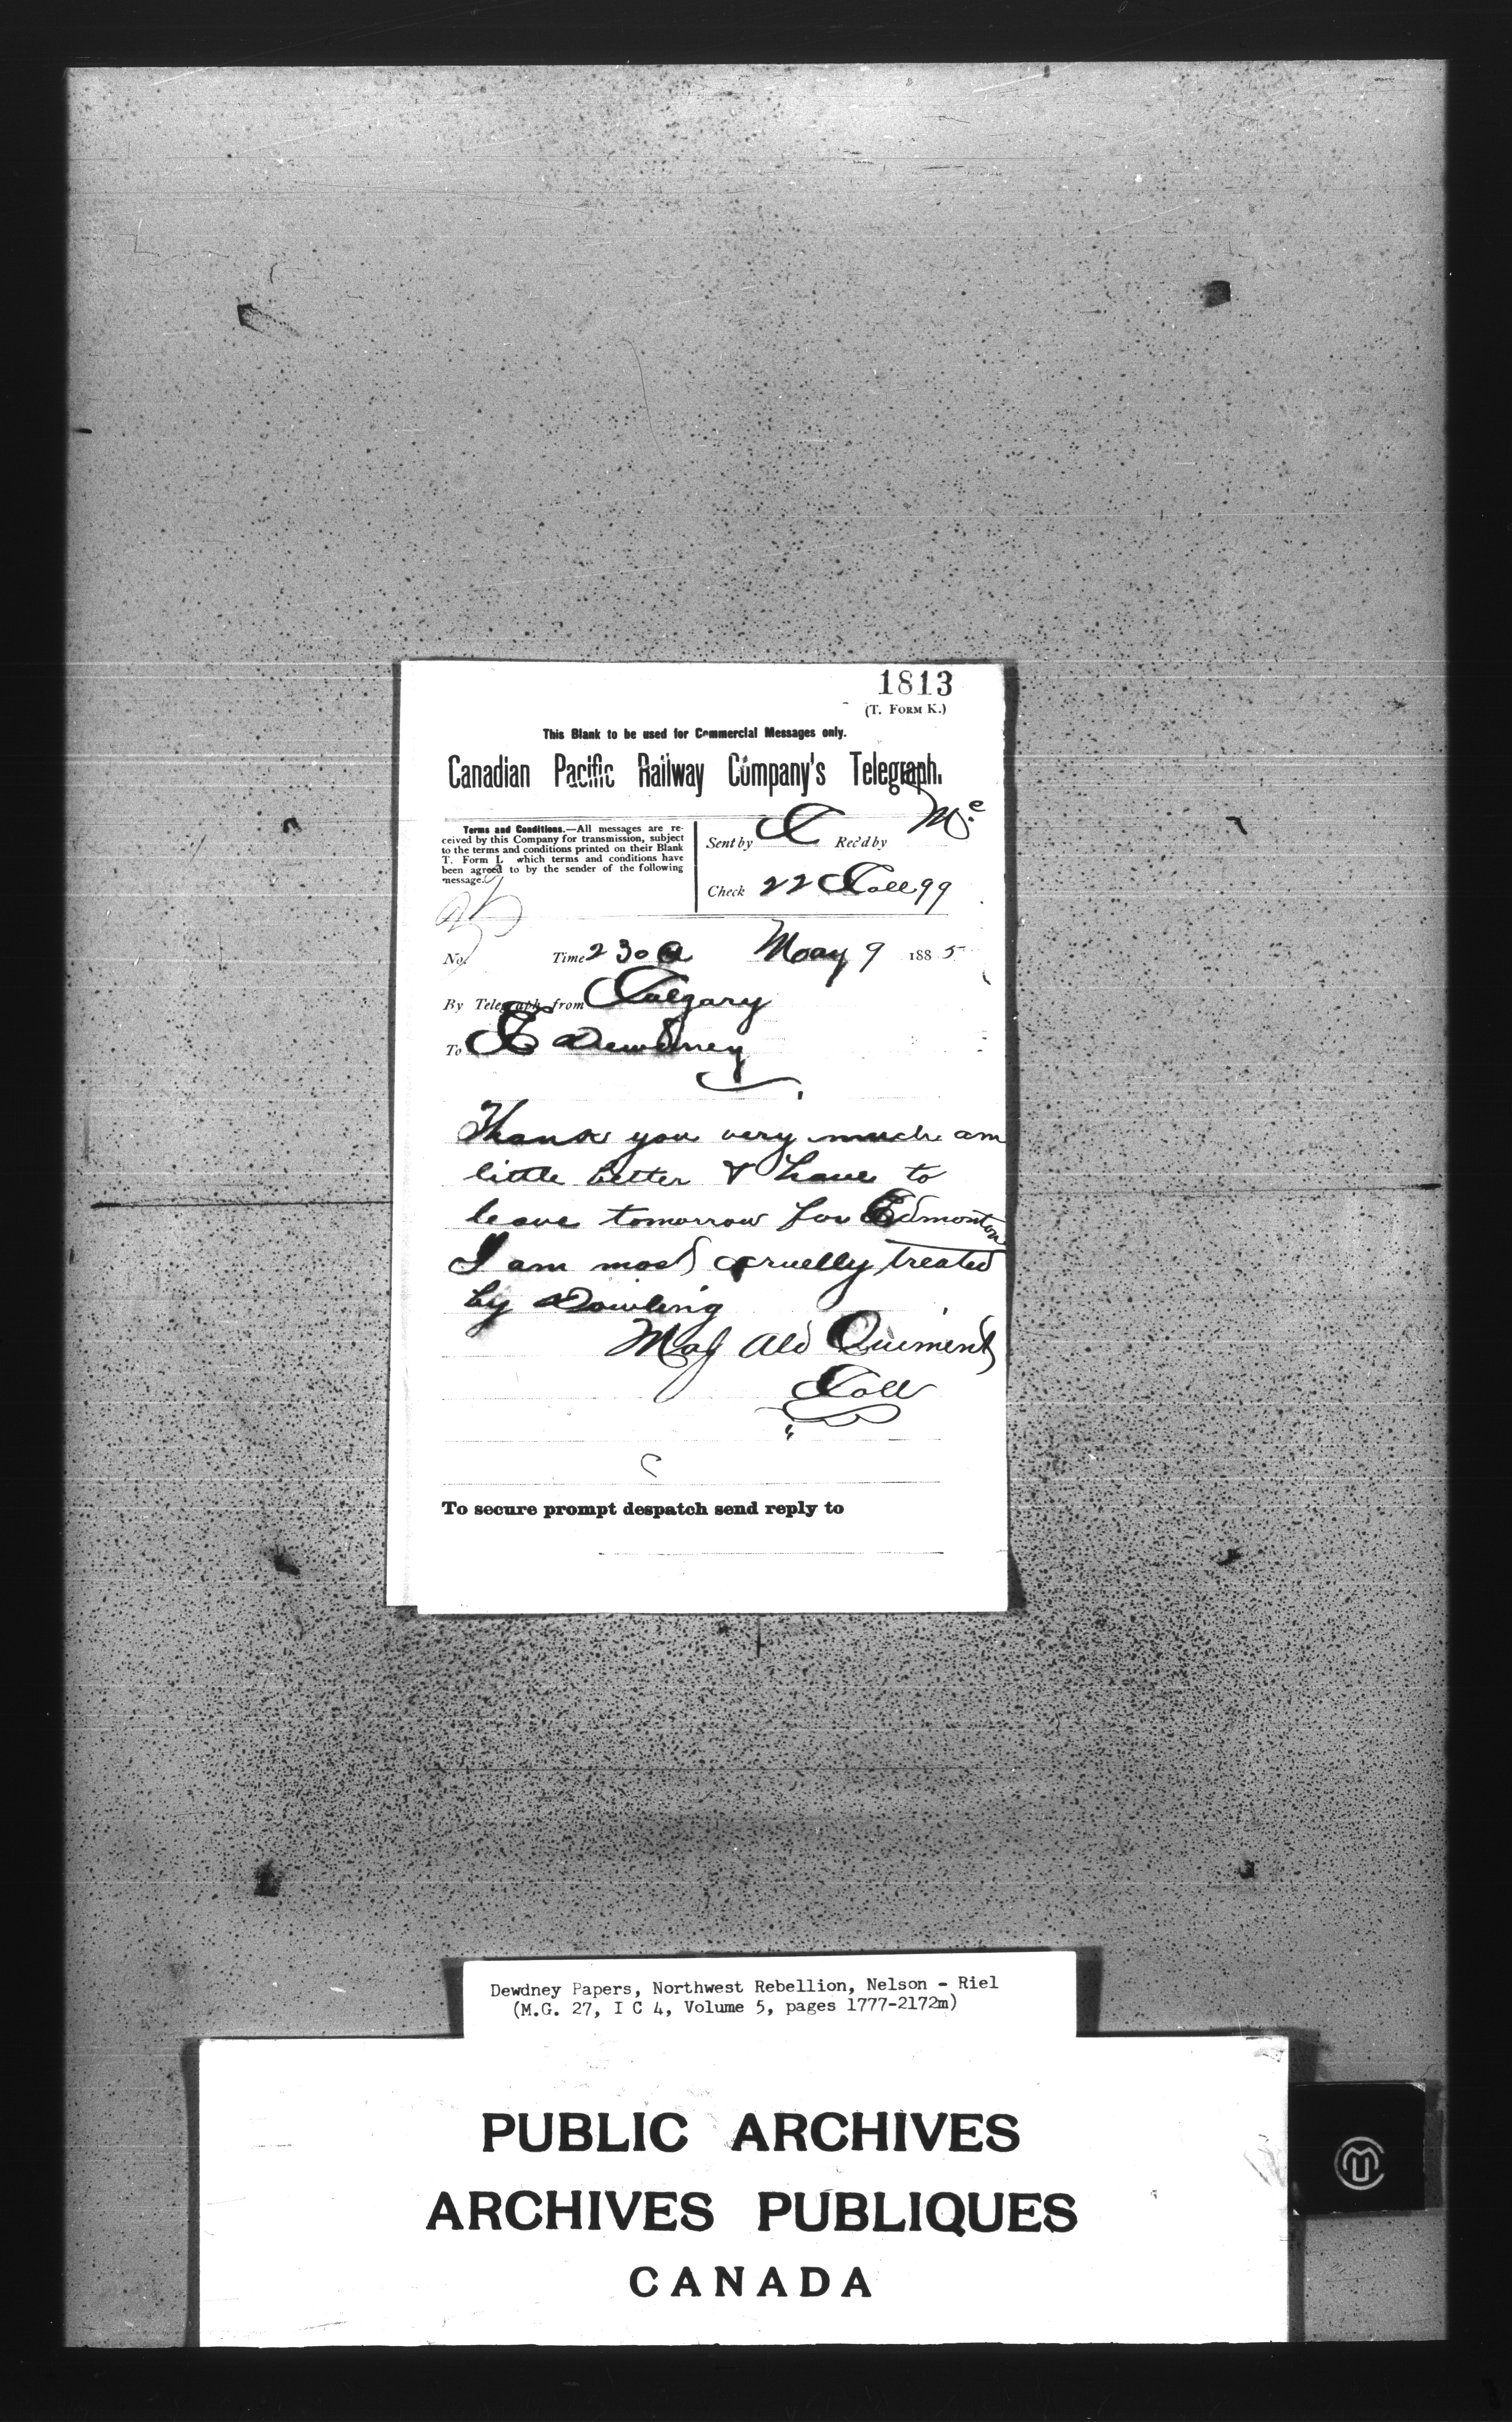 1813
(T. FORM K.)
This Blank to be used for Commercial Messages only.
Canadian Pacific Railway Company's Telegraph.
Terms and Conditions.—All messages are re-
ceived by this Company for transmission, subject
to the terms and conditions printed on their Blank
T. Form L which terms and conditions have
been agreed to by the sender of the following
message.
Sent by C Rec'd by Mc
Check 22 Coll 99
No. Time 2 30 a May 9 1885
By Telegraph from Calgary
To E Dewdney
Thank you very much am
little better & have to
leave tomorrow for Edmonton
I am most cruelly treated
by Dowling
Maj Ald Ouiment
Coll
To secure prompt despatch send reply to
Dewdney Papers, Northwest Rebellion, Nelson - Riel
(M.G. 27, I C 4, Volume 5, pages 1777-2172m)
PUBLIC ARCHIVES
ARCHIVES PUBLIQUES
CANADA